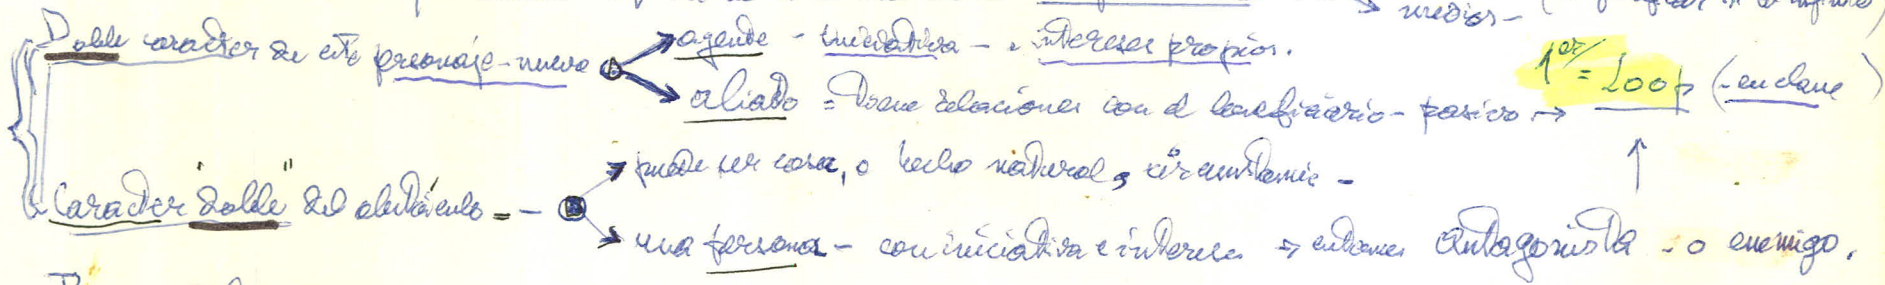 medios -
Doble caracter de este personaje - nuevo
agente - iniciativa - e intereses propios.
aliado = Tiene relaciones con el beneficiario - pasivo → 1er/ = 200 p (- en clave)
Caracter "doble" del obstáculo = -
puede ser cosa, o hecho natural, circunstancia -
una persona - con iniciativa e intereses → entonces antagonista - o enemigo.